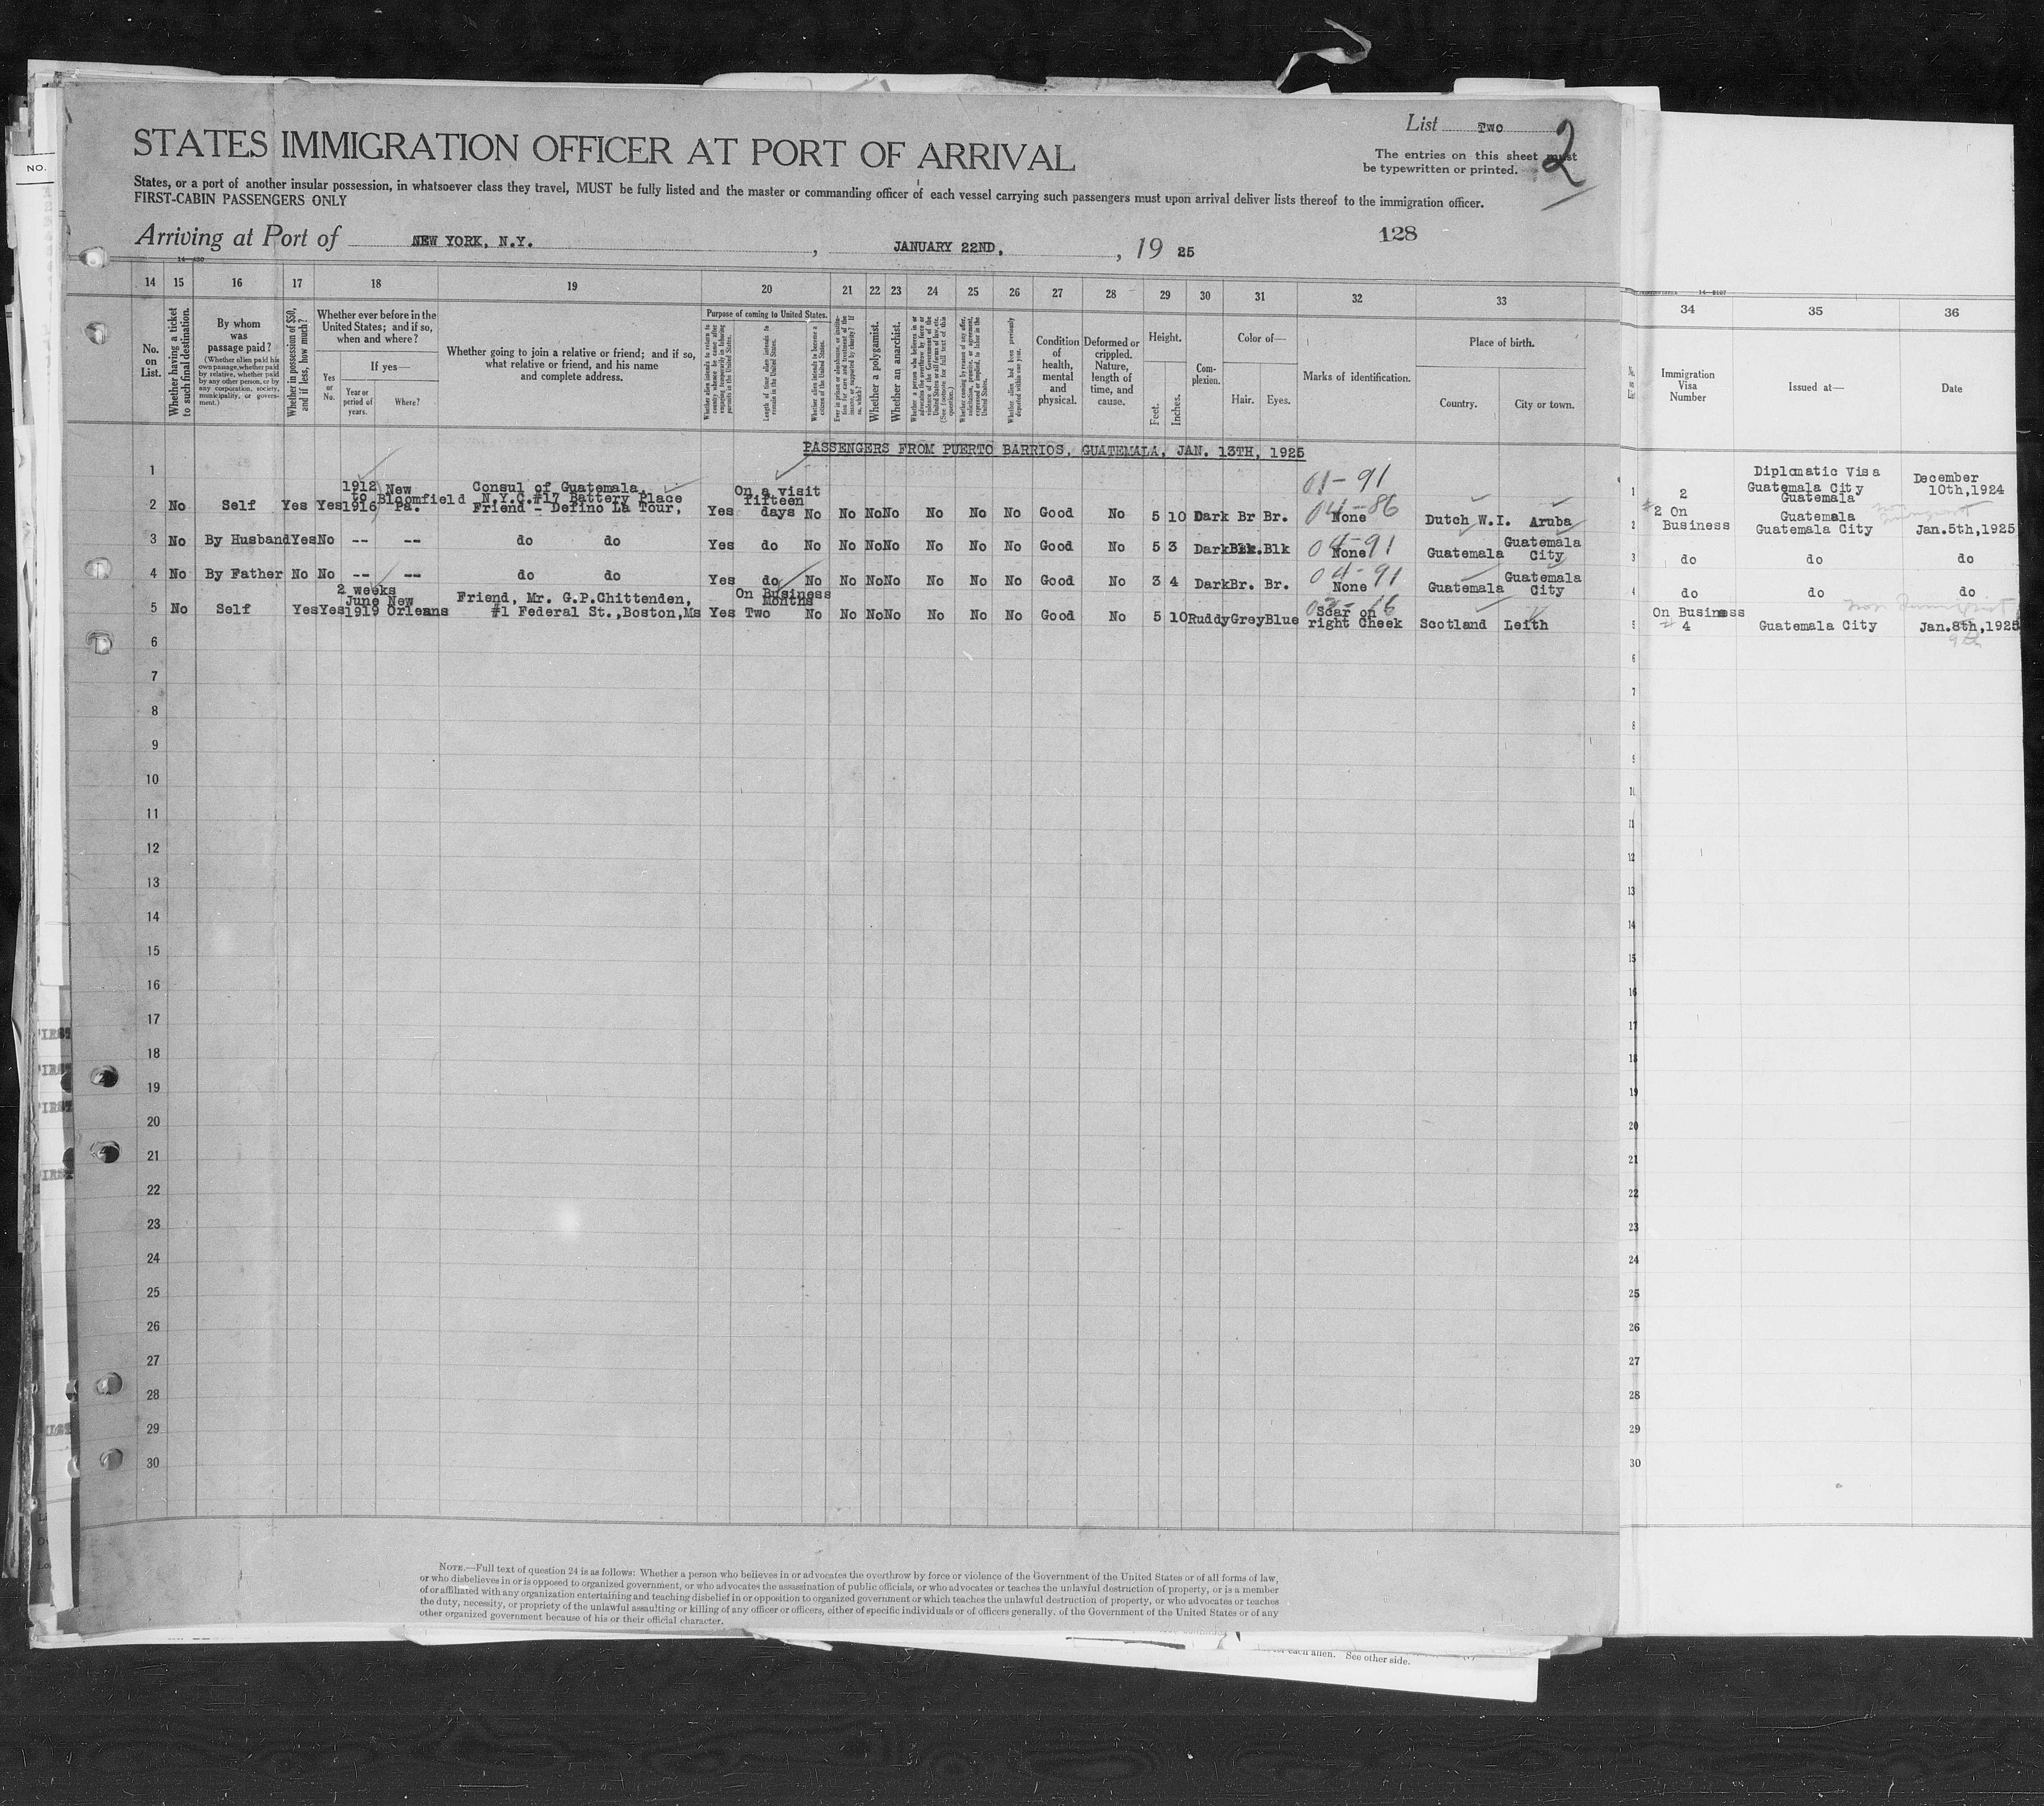 NO.
STATES IMMIGRATION OFFICER AT PORT OF ARRIVAL
List Two
2
The entries on this sheet must
be typewritten or printed.
States, or a port of another insular possession, in whatsoever class they travel, MUST be fully listed and the master or commanding officer of each vessel carrying such passengers must upon arrival deliver lists thereof to the immigration officer.
FIRST-CABIN PASSENGERS ONLY
Arriving at Port of NEW YORK, N.Y. , JANUARY 22ND, , 19 25
128
14 15 16 17 18 19 20 21 22 23 24 25 26 27 28 29 30 31 32 33 34 35 36
No. on List.
Whether having a ticket to such final destination.
By whom was passage paid?
(Whether alien paid his own passage, whether paid by relative, whether paid by any other person, or by any corporation, society, municipality, or government.)
Whether in possession of $50, and if less, how much?
Whether ever before in the United States; and if so, when and where?
Yes or No.
If yes—
Year or period of years.
Where?
Whether going to join a relative or friend; and if so, what relative or friend, and his name and complete address.
Purpose of coming to United States.
Length of time alien intends to remain in the United States.
Whether alien intends to become a citizen of the United States.
Whether a polygamist.
Whether an anarchist.
Condition of health, mental and physical.
Deformed or crippled. Nature, length of time, and cause.
Height.
Feet.
Inches.
Complexion.
Color of—
Hair.
Eyes.
Marks of identification.
Place of birth.
Country.
City or town.
Immigration Visa Number
Issued at—
Date
PASSENGERS FROM PUERTO BARRIOS, GUATEMALA, JAN. 13TH, 1925
1 01-91 1 2 Diplomatic Visa Guatemala City Guatemala December 10th,1924
2 No Self Yes Yes 1912 to 1916 New Bloomfield Pa. Consul of Guatemala, N.Y.C.#17 Battery Place Friend - Defino La Tour, Yes On a visit fifteen days No No No No No No No Good No 5 10 Dark Br Br. 04-86 None Dutch W.I. Aruba 2 #2 On Business Guatemala Guatemala City Jan.5th,1925
3 No By Husband Yes No -- -- do do Yes do No No No No No No No Good No 5 3 Dark Blk. Blk 04-91 None Guatemala Guatemala City 3 do do do
4 No By Father No No -- -- do do Yes do No No No No No No No Good No 3 4 Dark Br. Br. 04-91 None Guatemala Guatemala City 4 do do do
5 No Self Yes Yes 2 weeks June 1919 New Orleans Friend, Mr. G.P.Chittenden, #1 Federal St.,Boston,Ms Yes On Business Two Months No No No No No No No Good No 5 10 Ruddy Grey Blue Scar on right Cheek Scotland Leith 5 On Business # 4 Guatemala City Jan.8th,1925
9th
6 6
7 7
8 8
9 9
10 10
11 11
12 12
13 13
14 14
15 15
16 16
17 17
18 18
19 19
20 20
21 21
22 22
23 23
24 24
25 25
26 26
27 27
28 28
29 29
30 30
NOTE.—Full text of question 24 is as follows: Whether a person who believes in or advocates the overthrow by force or violence of the Government of the United States or of all forms of law,
or who disbelieves in or is opposed to organized government, or who advocates the assassination of public officials, or who advocates or teaches the unlawful destruction of property, or is a member
of or affiliated with any organization entertaining and teaching disbelief in or opposition to organized government or which teaches the unlawful destruction of property, or who advocates or teaches
the duty, necessity, or propriety of the unlawful assaulting or killing of any officer or officers, either of specific individuals or of officers generally, of the Government of the United States or of any
other organized government because of his or their official character.
for each alien. See other side.